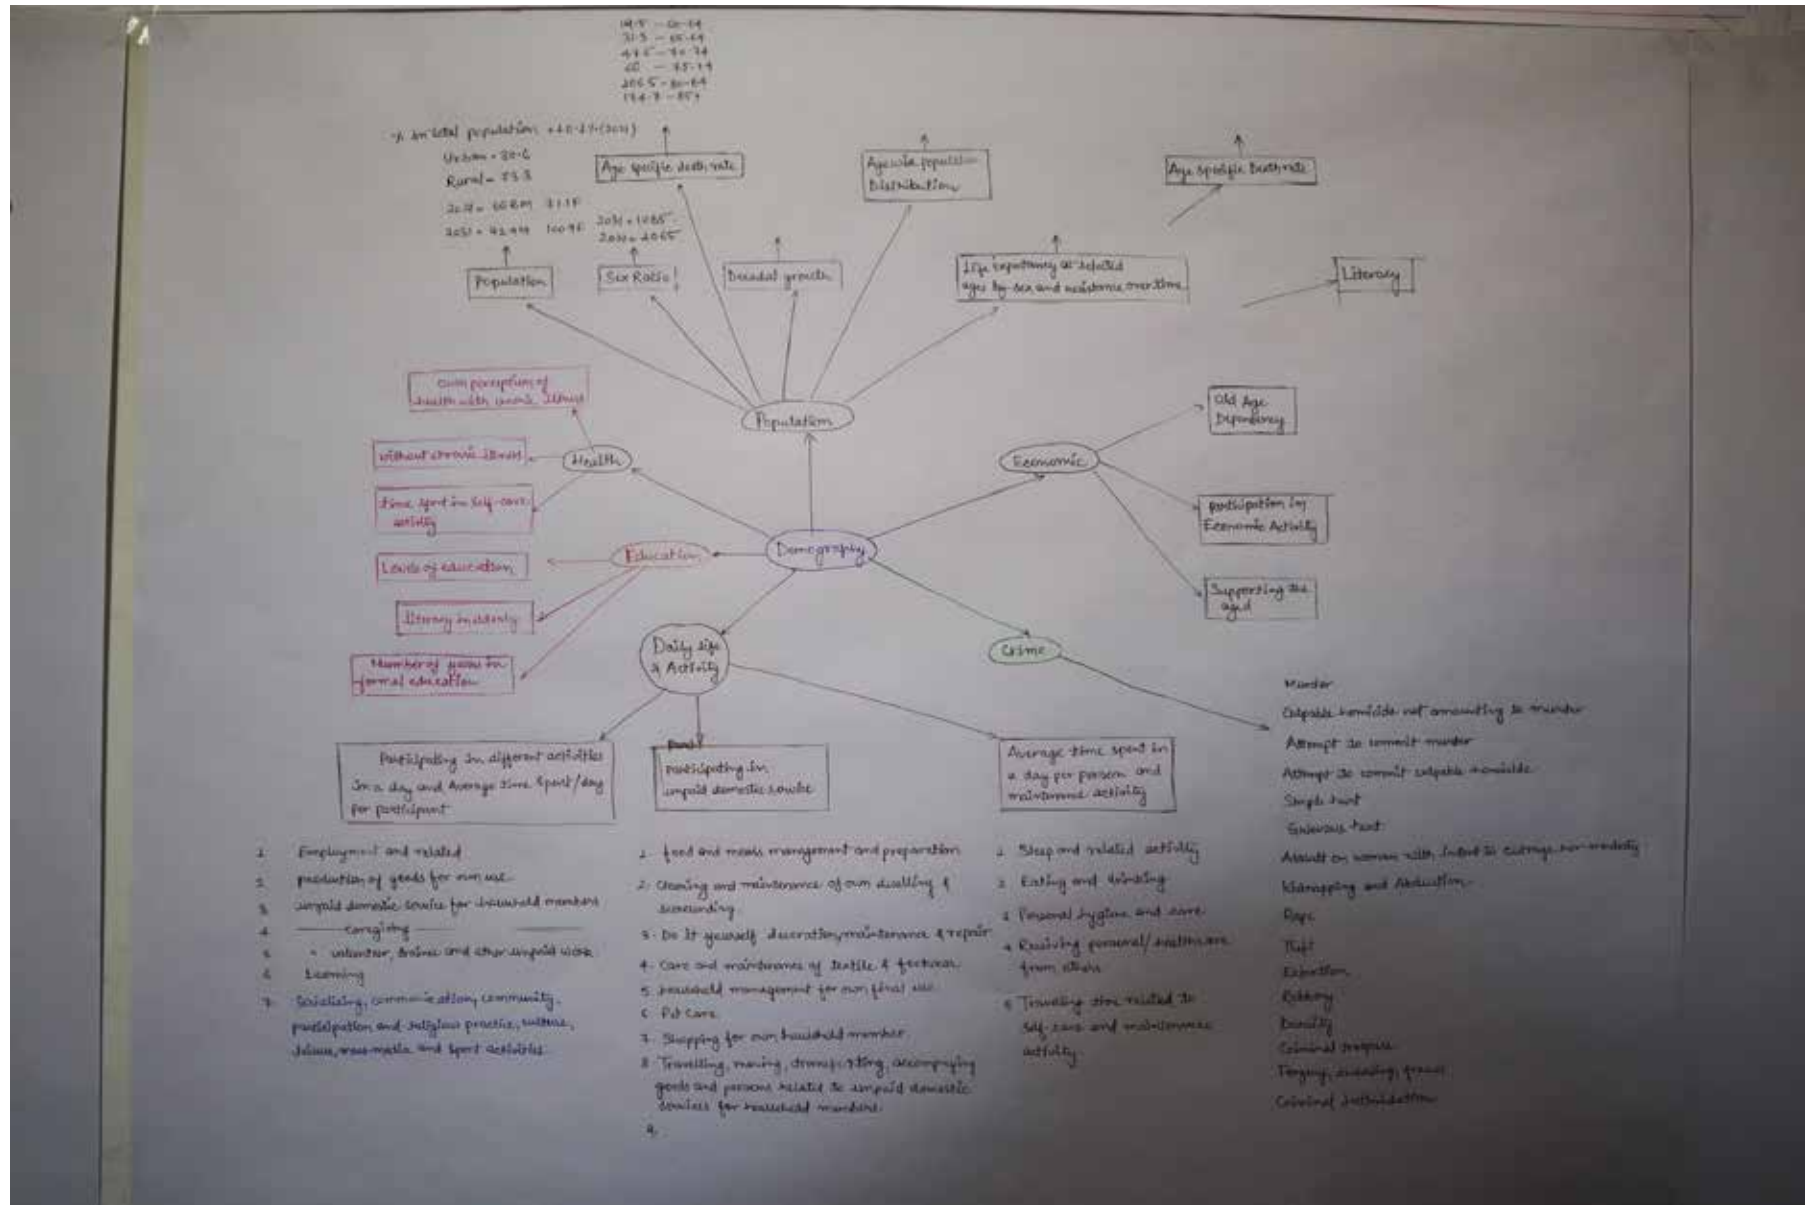 60-64
65-69
70-74
60 - 75-79
80-84
85+
% in total population
Urban =
Rural = 73.3
2031 =
Age specific death rate
Agewise population
Distribution
Age specific Death rate
Population
Sex Ratio
Decadal growth
Life expectancy at selected
ages by sex and residence over time
Literacy
Own perception of
health with chronic illness
without chronic illness
time spent in self-care
activity
Health
Population
Economic
Old Age
Dependency
participation in
Economic Activity
Supporting the
aged
Levels of education
Education
Demography
Literacy in elderly
Number of years in
formal education
Daily life
& Activity
Crime
Participating in different activities
in a day and Average time spent/day
per participant
participating in
unpaid domestic
Average time spent in
a day per person and
maintenance activity
1 Employment and related
2 production of goods for own use
3 unpaid domestic service for household members
4 caregiving
5 " volunteer, trainee and other unpaid work
6 Learning
7. Socialising, communication, community,
participation and religious practice, culture,
leisure, mass-media and sport activities
1. food and meals management and preparation
2. Cleaning and maintenance of own dwelling &
surrounding
3. Do it yourself decoration, maintenance & repair
4. Care and maintenance of textile &
5. household management for own final use
6 Pet care
7. Shopping for own household member
8 Travelling, moving, transporting, accompanying
goods and persons related to unpaid domestic
services for household members.
9.
1. Sleep and related activity
2. Eating and drinking
3 Personal hygiene and care
4 Receiving personal/healthcare
from others
5 Traveling time related to
self-care and maintenance
activity
Murder
Culpable homicide not amounting to murder
Attempt to commit murder
Attempt to commit culpable homicide
Simple hurt
hurt
Assault on woman with intent to outrage her modesty
Kidnapping and Abduction
Rape
Theft
Extortion
Robbery
Dacoity
Criminal trespass
Forgery, cheating, fraud
Criminal intimidation